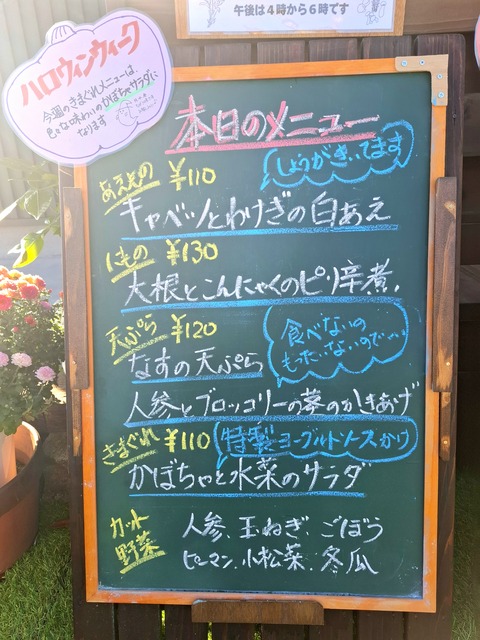 午後は4時から6時です
ハロウィンウィーク
今週のきまぐれメニューは、
色々な味わいのかぼちゃサラダに
なります
本日のメニュー
しょうがきいてます
あえもの ¥110
キャベツとわけぎの白あえ
にもの ¥130
大根とこんにゃくのピリ辛煮.
天ぷら ¥120
食べないの
もったいないので…
なすの天ぷら
人参とブロッコリーの茎のかきあげ
きまぐれ ¥110
特製ヨーグルトソースかけ
かぼちゃと水菜のサラダ
カット
野菜
人参、玉ねぎ、ごぼう
ピーマン、小松菜、冬瓜